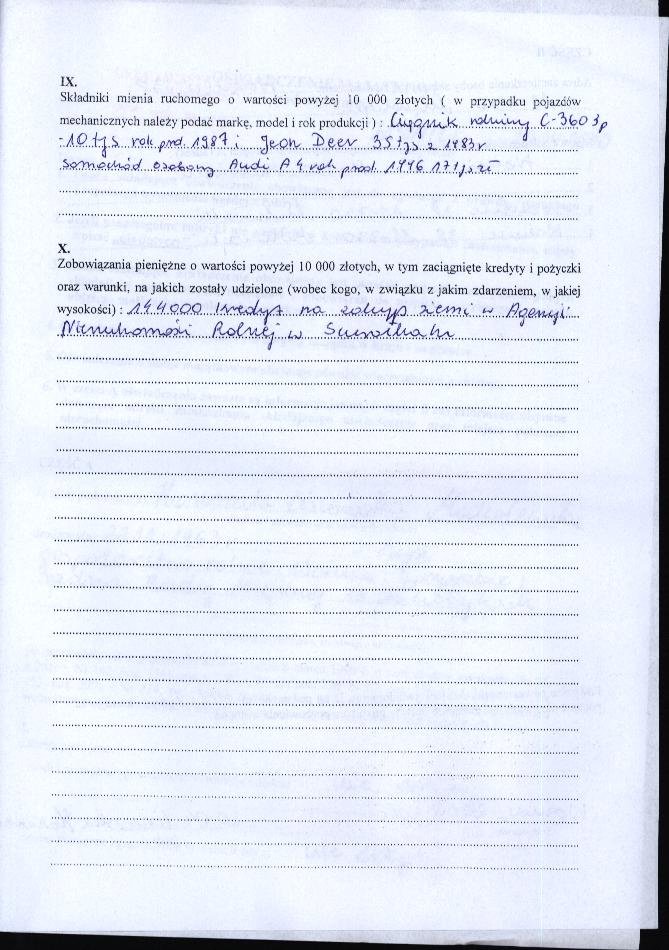 IX.
Składniki mienia ruchomego o wartości powyżej 10 000 złotych ( w przypadku pojazdów
mechanicznych należy podać markę, model i rok produkcji ) : Ciągnik rolniczy C-360 3p
-10 tys rok prod. 1987 i Jeon Deer 35 tys z 1983r
samochód osobowy Audi A4 rok prod. 1996 17 tys zł
X.
Zobowiązania pieniężne o wartości powyżej 10 000 złotych, w tym zaciągnięte kredyty i pożyczki
oraz warunki, na jakich zostały udzielone (wobec kogo, w związku z jakim zdarzeniem, w jakiej
wysokości) : 144000 kredyt na zakup ziemi w Agencji
Nieruchomości Rolnej w Suwałkach